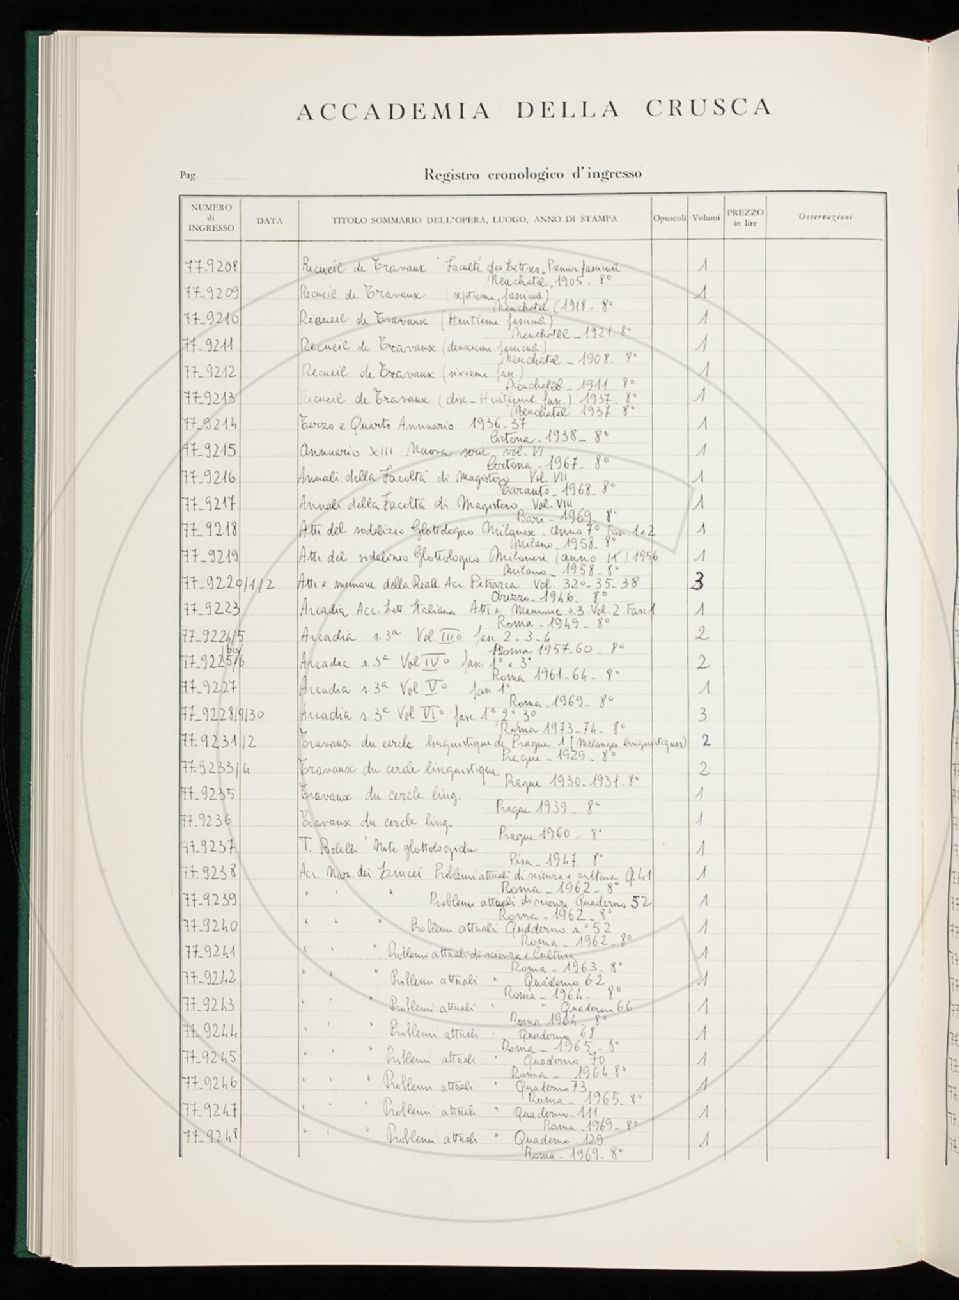 ACCADEMIA DELLA CRUSCA
Pag.
Registro cronologico d'ingresso
NUMERO di INGRESSO DATA TITOLO SOMMARIO DELL'OPERA, LUOGO, ANNO DI STAMPA Opuscoli Volumi PREZZO in lire Osservazioni
77-9208 Recueil de Travaux Faculté des Lettres. Premier fascicule 1
Neuchatel, 1905 - 8°
77-9209 Recueil de Travaux (septieme fascicule) 1
Neuchatel (1918 - 8°
77-9210 Recueil de Travaux (Huitieme fascicule) 1
Neuchatel - 1921. 8°
77-9211 Recueil de Travaux (deuxieme fascicule) 1
Neuchatel - 1908. 8°
77-9212 Recueil de Travaux (sixieme fasc.) 1
Neuchatel - 1911. 8°
77-9213 Recueil de Travaux (dix-Huitieme fasc.) 1937. 8° 1
Neuchatel 1937. 8°
77-9214 Terzo e Quarto Annuario 1936-37 1
Cortona. 1938 - 8°
77-9215 Annuario XIII Nuova serie vol. VI 1
Cortona - 1967. 8°
77-9216 Annali della Facoltà di Magistero Vol. VII 1
Taranto - 1968. 8°
77-9217 Annali della Facoltà di Magistero Vol. VIII 1
Bari - 1969. 8°
77-9218 Atti del sodalizio Glottologico Milanese. anno 7° Fasc. 1e2 1
Milano - 1958. 8°
77-9219 Atti del sodalizio Glottologico Milanese (anno IX) 1956 1
Milano - 1958 - 8°
77-9220/1/2 Atti e memorie della Reale Acc. Petrarca Vol. 32°-35-38 3
Arezzo - 1946. 8°
77-9223 Arcadia Acc. Lett. Italiana Atti e Memorie s.3 Vol. 2. Fasc 1 1
Roma - 1949 - 8°
77-9224/5 Arcadia s. 3ª Vol III° fasc. 2-3-4 2
Roma 1957-60 - 8°
bis
77-9225/6 Arcadia s. 3ª Vol IV° fasc 1° e 3° 2
Roma 1961-64. - 8°
77-9227 Arcadia s. 3ª Vol V° fasc 1° 1
Roma - 1969 - 8°
77-9228/9/30 Arcadia s 3ª Vol VI° fasc. 1°, 2°, 3° 3
Roma 1973-74. - 8°
77-9231/2 Travaux du cercle linguistique de Prague 1 (Mélanges linguistiques) 2
Prague - 1929 - 8°
77-9233/4 Travaux du cercle linguistique 2
Prague 1930-1931. 8°
77-9235 Travaux du cercle ling. 1
Prague 1939 - 8°
77-9236 Travaux du cercle ling. 1
Prague 1960 - 8°
77-9237 T. Bolelli Note glottologiche 1
Pisa - 1947. 8°
77-9238 Acc Naz. dei Lincei Problemi attuali di scienza e cultura Q 41 1
Roma - 1962 - 8°
77-9239 " " " Problemi attuali di scienze Quaderno 52 1
Roma - 1962 - 8°
77-9240 " " " Problemi attuali Quaderno n° 52 1
Roma - 1962 - 8°
77-9241 " " " Problemi attuali di scienza e Cultura 1
Roma - 1963 - 8°
77-9242 " " " Problemi attuali " Quaderno 62 1
Roma - 1964 - 8°
77-9243 " " " Problemi attuali " " Quaderno 66 1
Roma 1964 - 8°
77-9244 " " " Problemi attuali " Quaderno 68 1
Roma - 1965 - 8°
77-9245 " " " Problemi attuali " Quaderno 70 1
Roma - 1964 8°
77-9246 " " " Problemi attuali " Quaderno 73 1
Roma - 1965. 8°
77-9247 " " " Problemi attuali " Quaderno 111 1
Roma - 1969 - 8°
77-9248 " " " Problemi attuali " Quaderno 129 1
Roma - 1969. 8°